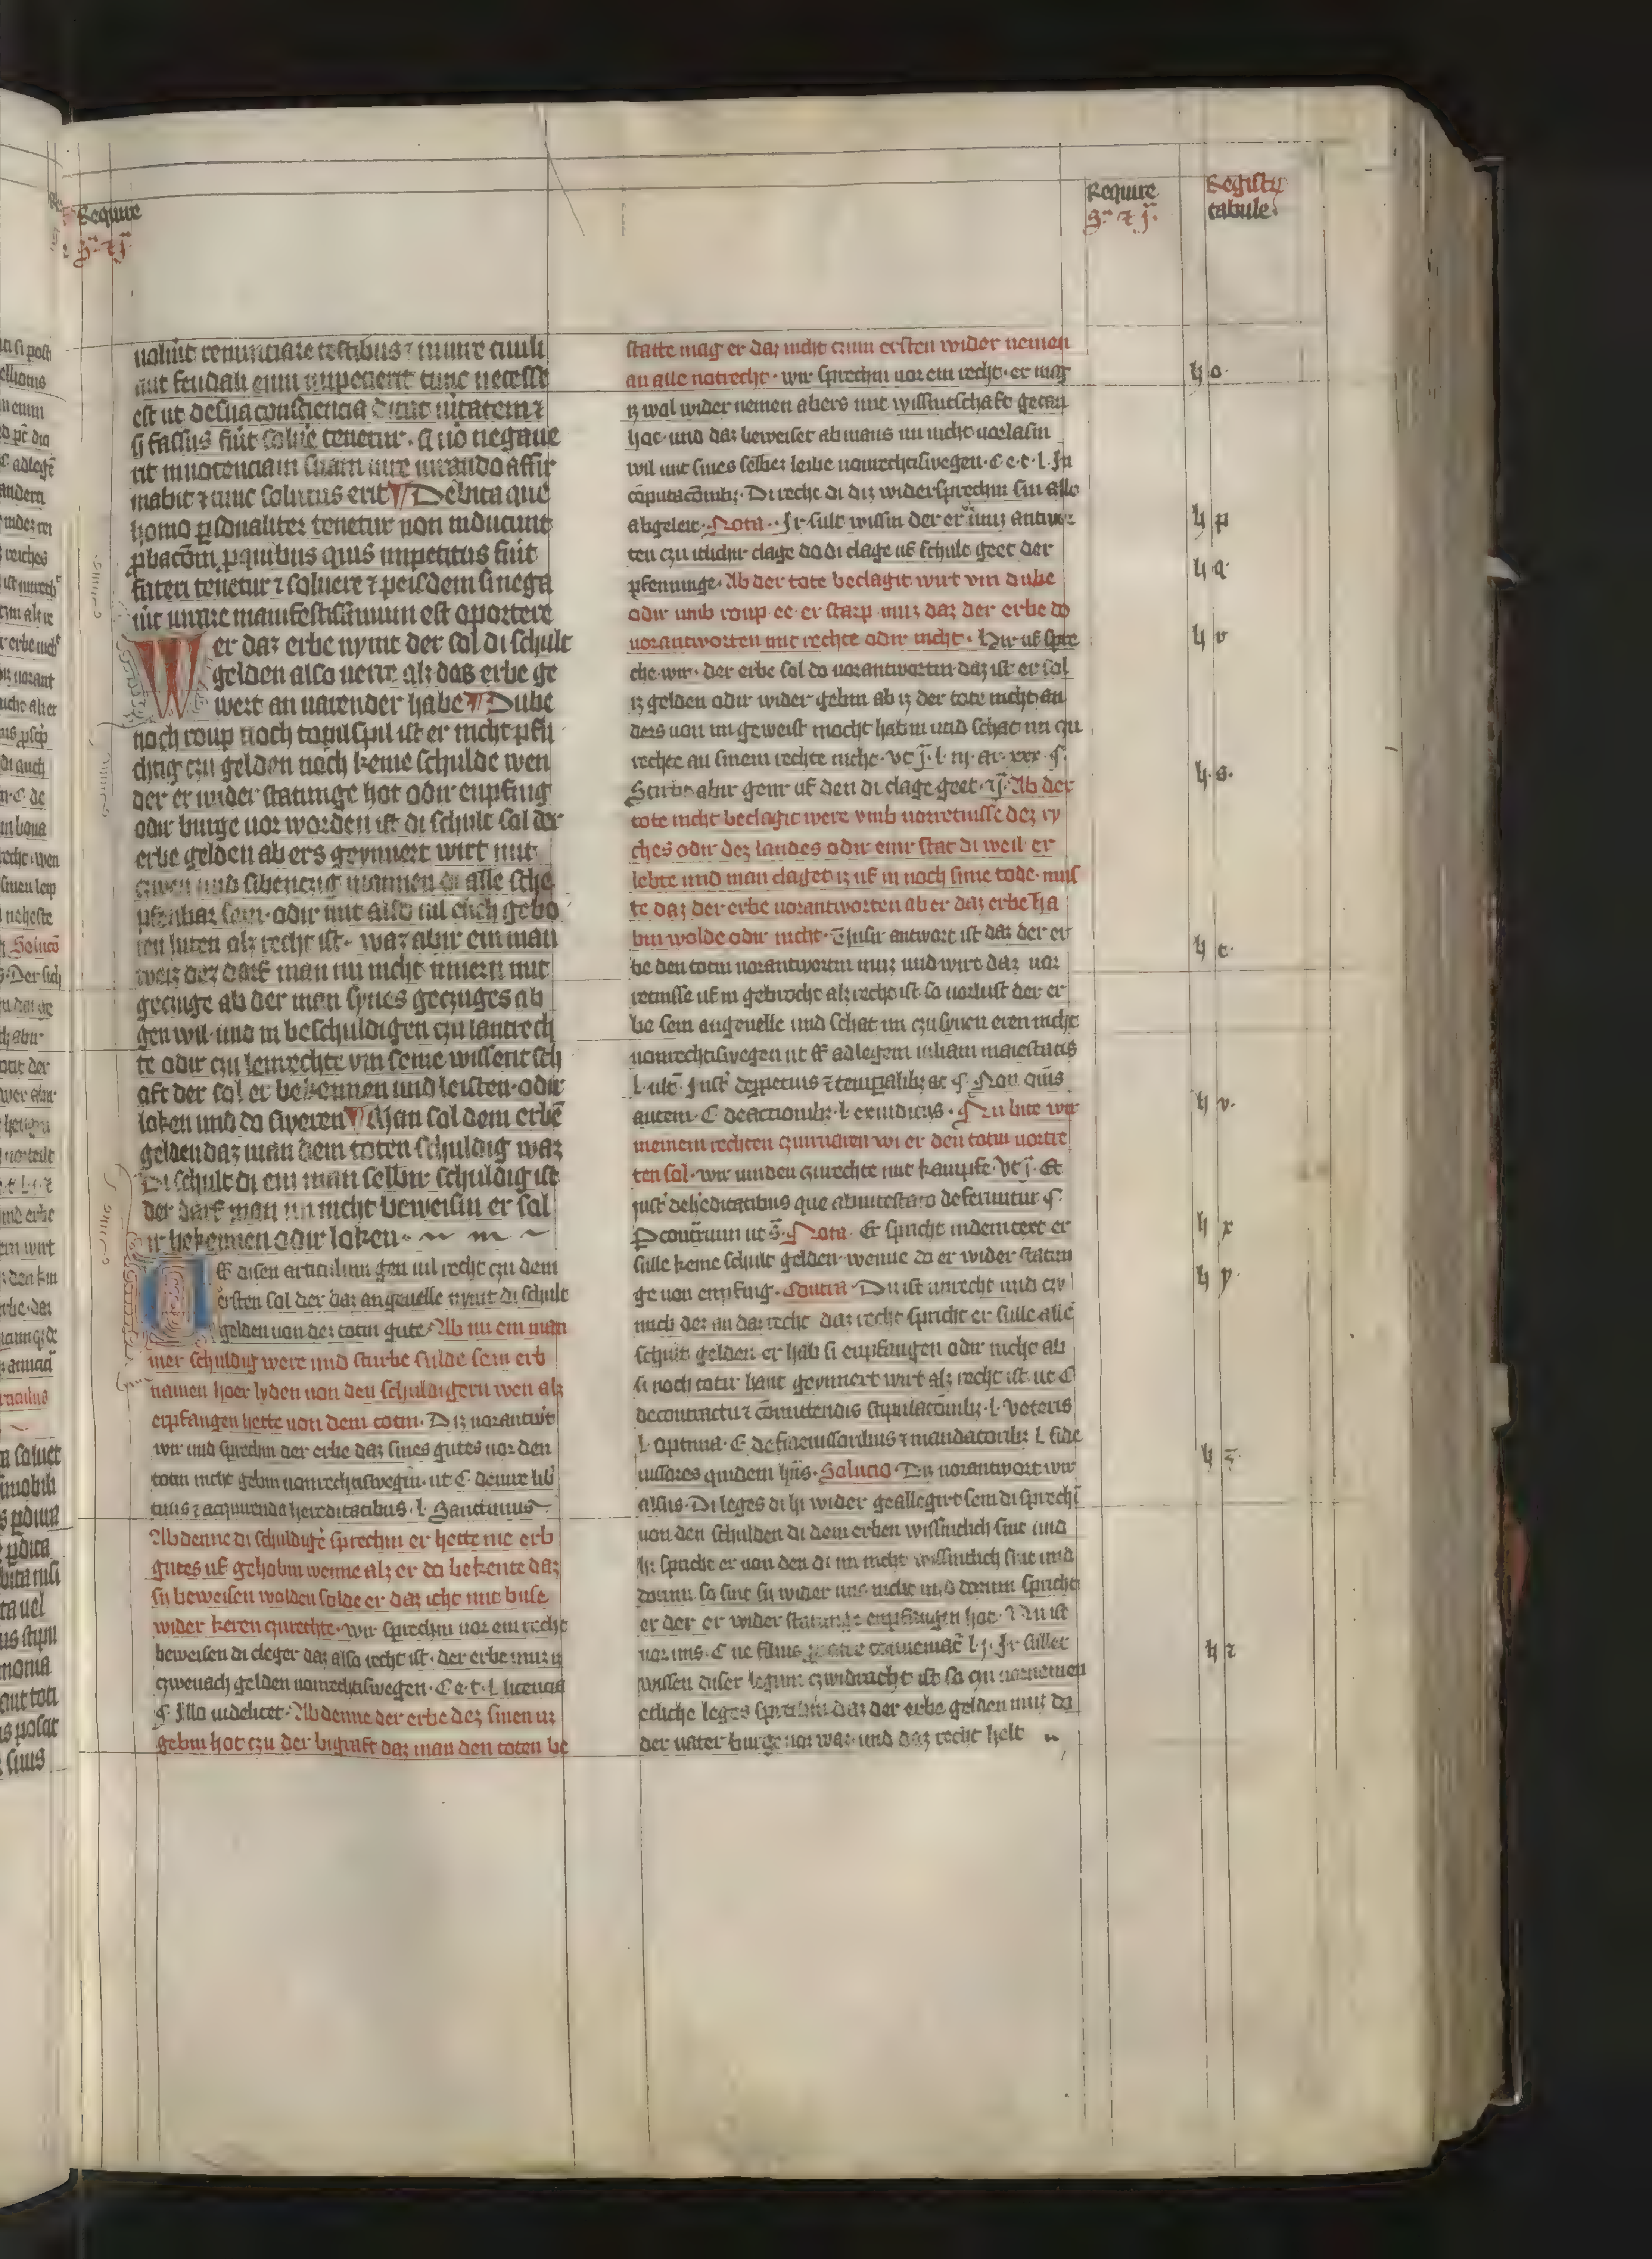 Require
uoluit renunciare testibus ⁊ iure ciuili
aut feudali eum impecierit tunc necesse
est ut de sua consciencia dicat uitatem ⁊
si fassus fuit soluere tenetur. si uo negaue
rit innocenciam suam iure iurando affir
mabit ⁊ tunc solutus erit Debita que
homo psonaliter tenetur non inducunt
pbacom pquibus quis impetitus fuit
fateri tenetur ⁊ soluere
uit iurare manifestissimum est oportere
Wer daz erbe nymt der sol di schult
gelden also uerre alz das erbe ge
wert an uarender habe Dube
noch roup noch topilspil ist er nicht pfli
chtig czu gelden noch keine schulde wen
der er wider statunge hot odir enpfing
odir burge uor worden ist di schult sal der
erbe gelden ab ers geynnert wirt mit
czwen und sibenczig mannen di alle sche
pfenbar sein. odir mit also uil elich gebo
ren luten alz recht ist. waz abir ein man
weiz dez darf man nu nicht innern mit
geczuge ab der man synes geczuges ab
gen wil und in beschuldigen czu lantrech
te odir czu lenrechte vm seine wissentsch
aft der sol er bekennen und leisten odir
loken und do sweren Man sal dem erbe
gelden daz man dem toten schuldig waz
Di schult di ein man selbir schuldig ist
der darf man in nicht beweisin er sal
ir bekennen odir loken
Uf disen articulum gen uil recht czu dem
ersten sol der daz angeuelle nymt di schult
gelden uon dez totin gute. Ab nu ein man
mer schuldig were und sturbe sulde sein erb
namen hoer lyden uon den schuldigern wen alz
enpfangen hette uon dem totin. Diz uorantwert
wir und sprechin der erbe daz sines gutes uor den
totin nicht gebin uonrechtiswegin. ut C. de iure lib
tinis ⁊ acquirenda hereditatibus. l. Sancimus
Ab denne di schuldiger sprechin er hette me erb
gutes uf gehobin wenne alz er do bekente daz
sy beweisen wolden solde er daz icht mit buse
wider keren czurechte. wir sprechin uor ein recht
beweisen di cleger daz also recht ist. der erbe muz iz
czweuach gelden uonrechtiswegen. C e. t. l. licencia
¶. Illo uidelicet. Ab denne der erbe dez sinen uz
gebin hot czu der bigraft daz man den toten be
statte mag er daz nicht czum ersten wider nemen
an alle notrecht. wir sprechin uor ein recht. er mag
iz wol wider nemen abers mit wissintschaft getan
hot und daz beweiset ab mans im nicht uorlasin
wil mit sines selbez leibe uonrechtiswegen. C e. t. l. In
coputacoibz. Di recht di diz widersprechin sin alle
abgeleit. Nota. Ir sult wissin der er muz antwor
ten czu itlichir clage do di clage uf schult geet der
pfenninge. Ab der tote beclagit wirt vm dube
odir umb roup ee er starp muz daz der erbe do
uorantworten mit rechte odir nicht. Hir uf spre
che wir. der erbe sol do uorantwortin daz ist er sol
iz gelden odir wider gebin ab iz der tote nicht an
ders uon im geweist mocht habin und schat im czu
rechte an sinem rechte nicht.
Sturbe abir genr uf den di clage geet. Ab der
tote nicht beclagit were vmb uorretnisse dez ry
ches odir dez landes odir einr stat di weil er
lebte und man claget iz uf in noch sime tode. mus
te daz der erbe uorantworten ab er daz erbe ha
bin wolde odir nicht. Unsir antwort ist daz der er
be den totin uorantwortin muz und wirt daz uor
retnisse uf in gebrocht alz recht ist so uorlust der er
be sein angeuelle und schat im czu synen eren nicht
uonrechtiswegen ut ff ad legem iuliam maiestatis
autem. C de actionibz. l. ex iudiciis. Nu bite wir
meinem rechten czuuaren wi er den totin uortre
ten sol. wir uinden czurechte mit kampfe.
que ab intestato deferuntur ¶.
Nota. Er spricht in dem text er
sulle keine schult gelden wenne do er wider statun
ge uon enpfing. Contra. Du ist unrecht und czy
uuch dez an daz recht daz recht spricht er sulle alle
schult gelden er hab si enpfangen odir nicht ab
si noch totir hant geynnert wirt alz recht ist ut C
de contractu ⁊ comitendis stipulacoibz. l. veteris
l. optima. C de fideiussoribus ⁊ mandatoribz l. fide
iussores quidem. Solucio. Diz uorantwort wir
alsus. Di leges di hi wider geallegirt sein di sprechin
uon den schulden di dem erben wissintlich sint und
hi spricht er uon den di im nicht wissintlich sint und
dorum so sint sy wider uns nicht und dorum spricht
er der er wider statunge enpfangen hot. Nu ist
uor uns. C ne filius l. j. Ir sullet
wissen diser legum czwidracht ist so czu uornemen
etliche leges sprechin daz der erbe gelden muz do
der uater burge uor waz und daz recht helt
Require
Registrum
tabule
h o.
h p
h q
h r
h s.
h t
h v.
h x
h y
h z
h ⁊